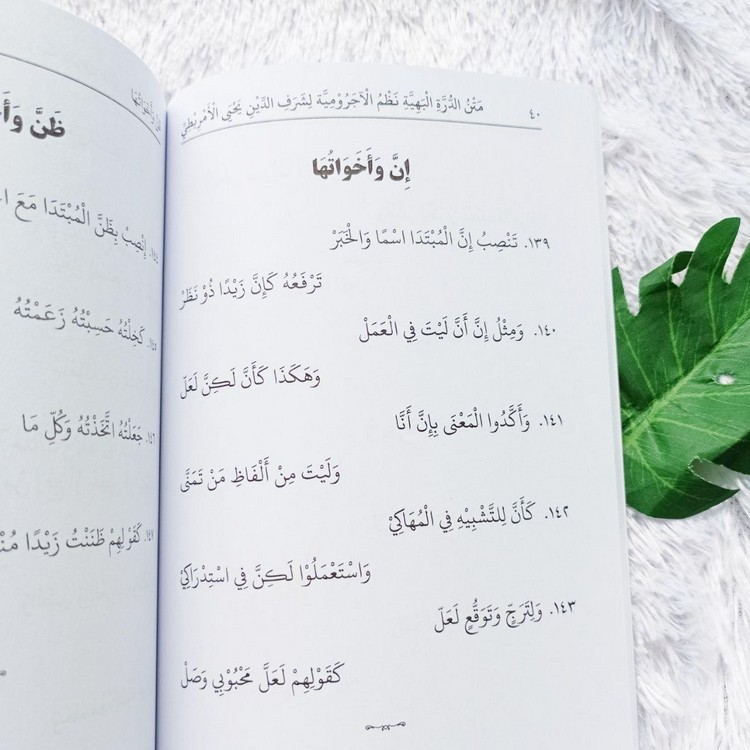 ٤٠ مَتْنُ الدُّرَّةِ الْبَهِيَّةِ نَظْمُ الْآجَرُومِيَّةِ لِشَرَفِ الدِّيْنِ يَحْيَى الْأَمْرِيْطِيِّ
إِنَّ وَأَخَوَاتُهَا
١٣٩. تَنْصِبُ إِنَّ الْمُبْتَدَا اسْمًا وَالْخَبَرْ
تَرْفَعُهُ كَإِنَّ زَيْدًا ذُوْ نَظَرْ
١٤٠. وَمِثْلُ إِنَّ أَنَّ لَيْتَ فِي الْعَمَلْ
وَهَكَذَا كَأَنَّ لَكِنَّ لَعَلّ
١٤١. وَأَكَّدُوا الْمَعْنَى بِإِنَّ أَنَّا
وَلَيْتَ مِنْ أَلْفَاظِ مَنْ تَمَنَّى
١٤٢. كَأَنَّ لِلتَّشْبِيْهِ فِي الْمُهَاكِيْ
وَاسْتَعْمَلُوْا لَكِنَّ فِي اسْتِدْرَاكِيْ
١٤٣. وَلِتَرَجٍّ وَتَوَقُّعٍ لَعَلّ
كَقَوْلِهِمْ لَعَلَّ مَحْبُوْبِي وَصَلْ
ظَنَّ وَأَخَوَاتُهَا
ظَنَّ وَأَ
١٤٤. اِنْصِبْ بِظَنَّ الْمُبْتَدَا مَعَ
١٤٥. كَخِلْتُهُ حَسِبْتُهُ زَعَمْتُهُ
١٤٦. جَعَلْتُهُ اتَّخَذْتُهُ وَكُلِّ مَا
١٤٧. كَقَوْلِهِمْ ظَنَنْتُ زَيْدًا